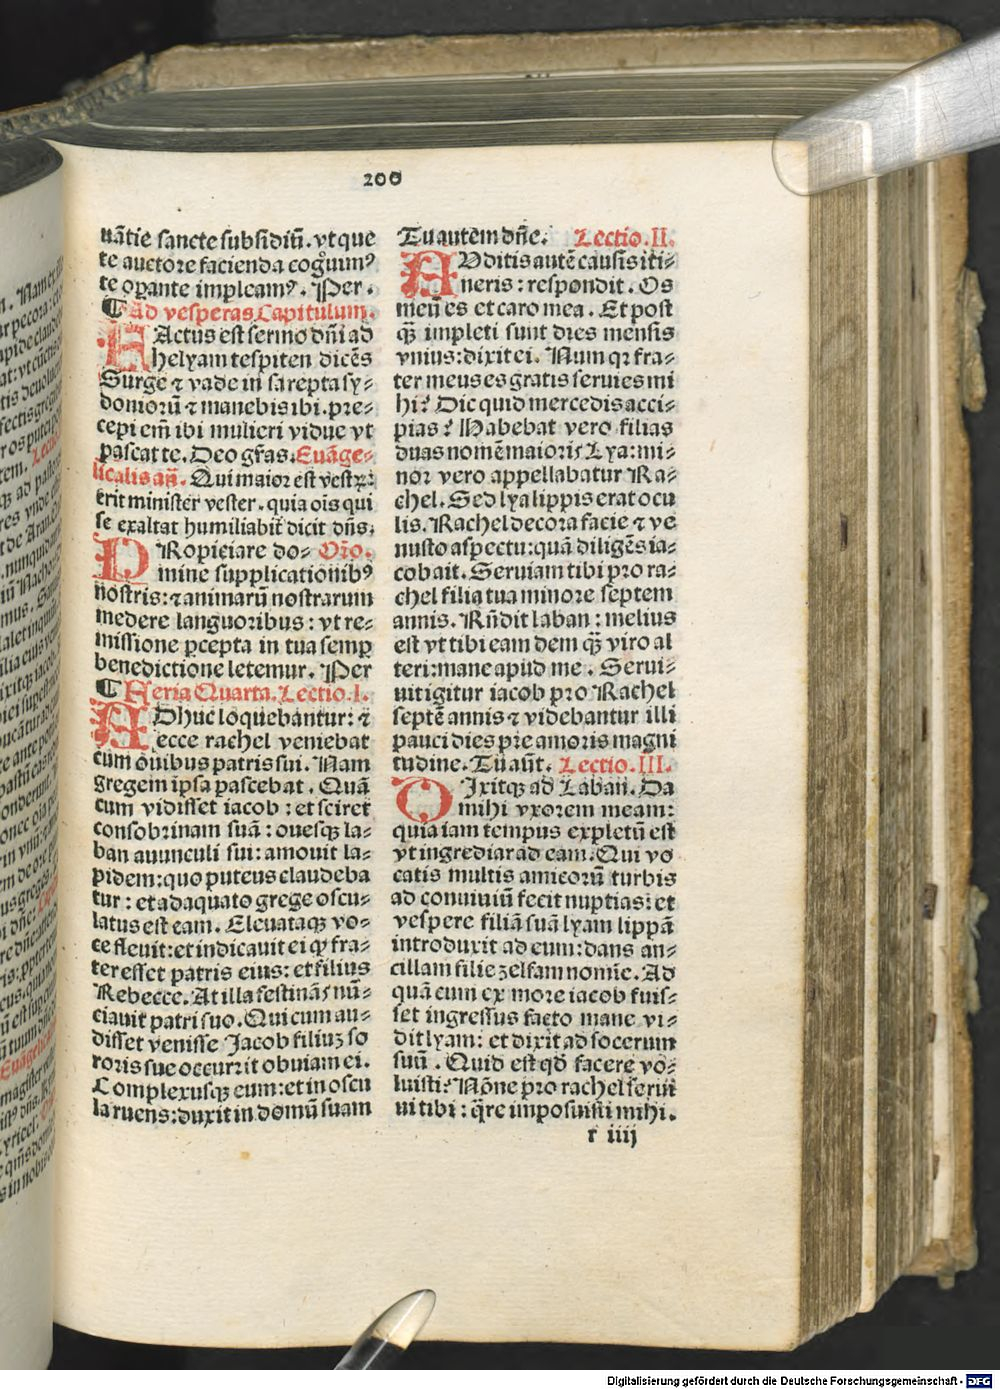 200
uātie sancte subsidiū. vt que
te auctore facienda cogͦuimꝰ
te oꝑante impleamꝰ. Per.
¶ Ad vesperas Capitulum.
FActus est sermo dn̄i ad
helyam tespiten dicēs
Surge ⁊ vade in sarepta sy⸗
doniorū ⁊ manebis ibi. pre⸗
cepi em̄ ibi mulieri vidue vt
pascat te. Deo gr̄as. Euāge⸗
licalis an̄. Qui maior est vestꝝ:
erit minister vester. quia oīs qui
se exaltat humiliabit̄ dicit dn̄s.
PRopiciare do- Or̄o.
mine supplicationibꝰ
nostris: ⁊ animarū nostrarum
medere languoribus: vt re⸗
missione ꝑcepta in tua semꝑ
benedictione letemur. Per
¶ Feria Quarta. Lectio. I.
ADhuc loquebantur: ⁊
ecce rachel veniebat
cum ouibus patris sui. Nam
gregem ipsa pascebat. Quā
cum vidisset iacob: et sciret
consobrinam suā: ouesqꝫ la⸗
ban auunculi sui: amouit la⸗
pidem: quo puteus claudeba
tur: et adaquato grege oscu⸗
latus est eam. Eleuataqꝫ vo⸗
ce fleuit: et indicauit ei qꝙ fra⸗
ter esset patris eius: et filius
Rebecce. At illa festinās nū⸗
ciauit patri suo. Qui cum au⸗
disset venisse Jacob filiuꝫ so
roris sue occurrit obuiam ei.
Complexusqꝫ eum: et in oscu
la ruens: duxit in domū suam
Tu autem dn̄e. Lectio. II.
AUditis autē causis iti⸗
neris: respondit. Os
meū es et caro mea. Et post
qꝫ̄ impleti sunt dies mensis
vnius: dixit ei. Num qꝛ fra⸗
ter meus es gratis seruies mi
hi? Dic quid mercedis acci⸗
pias? Habebat vero filias
duas nomē maioris Lya: mi⸗
nor vero appellabatur Ra⸗
chel. Sed lya lippis erat ocu
lis. Rachel decora facie ⁊ ve
nusto aspectu: quā diligēs ia⸗
cob ait. Seruiam tibi pro ra⸗
chel filia tua minore septem
annis. Rn̄dit laban: melius
est vt tibi eam dem qꝫ̄ viro al
teri: mane apud me. Serui⸗
uit igitur iacob pro Rachel
septē annis ⁊ videbantur illi
pauci dies pre amoris magni
tudine. Tu aūt. Lectio. III.
DIxitqꝫ ad Laban. Da
mihi vxorem meam:
quia iam tempus expletū est
vt ingrediar ad eam. Qui vo
catis multis amicorū turbis
ad conuiuiū fecit nuptias: et
vespere filiā suā lyam lippā
introduxit ad eum: dans an⸗
cillam filie zelfam nomīe. Ad
quā cum ex more iacob fuis⸗
set ingressus facto mane vi⸗
dit lyam: et dixit ad socerum
suū. Quid est qd̄ facere vo⸗
luisti? Nōne pro rachel serui
ui tibi: qͣre imposuisti mihi.
r iiij
Digitalisierung gefördert durch die Deutsche Forschungsgemeinschaft - DFG